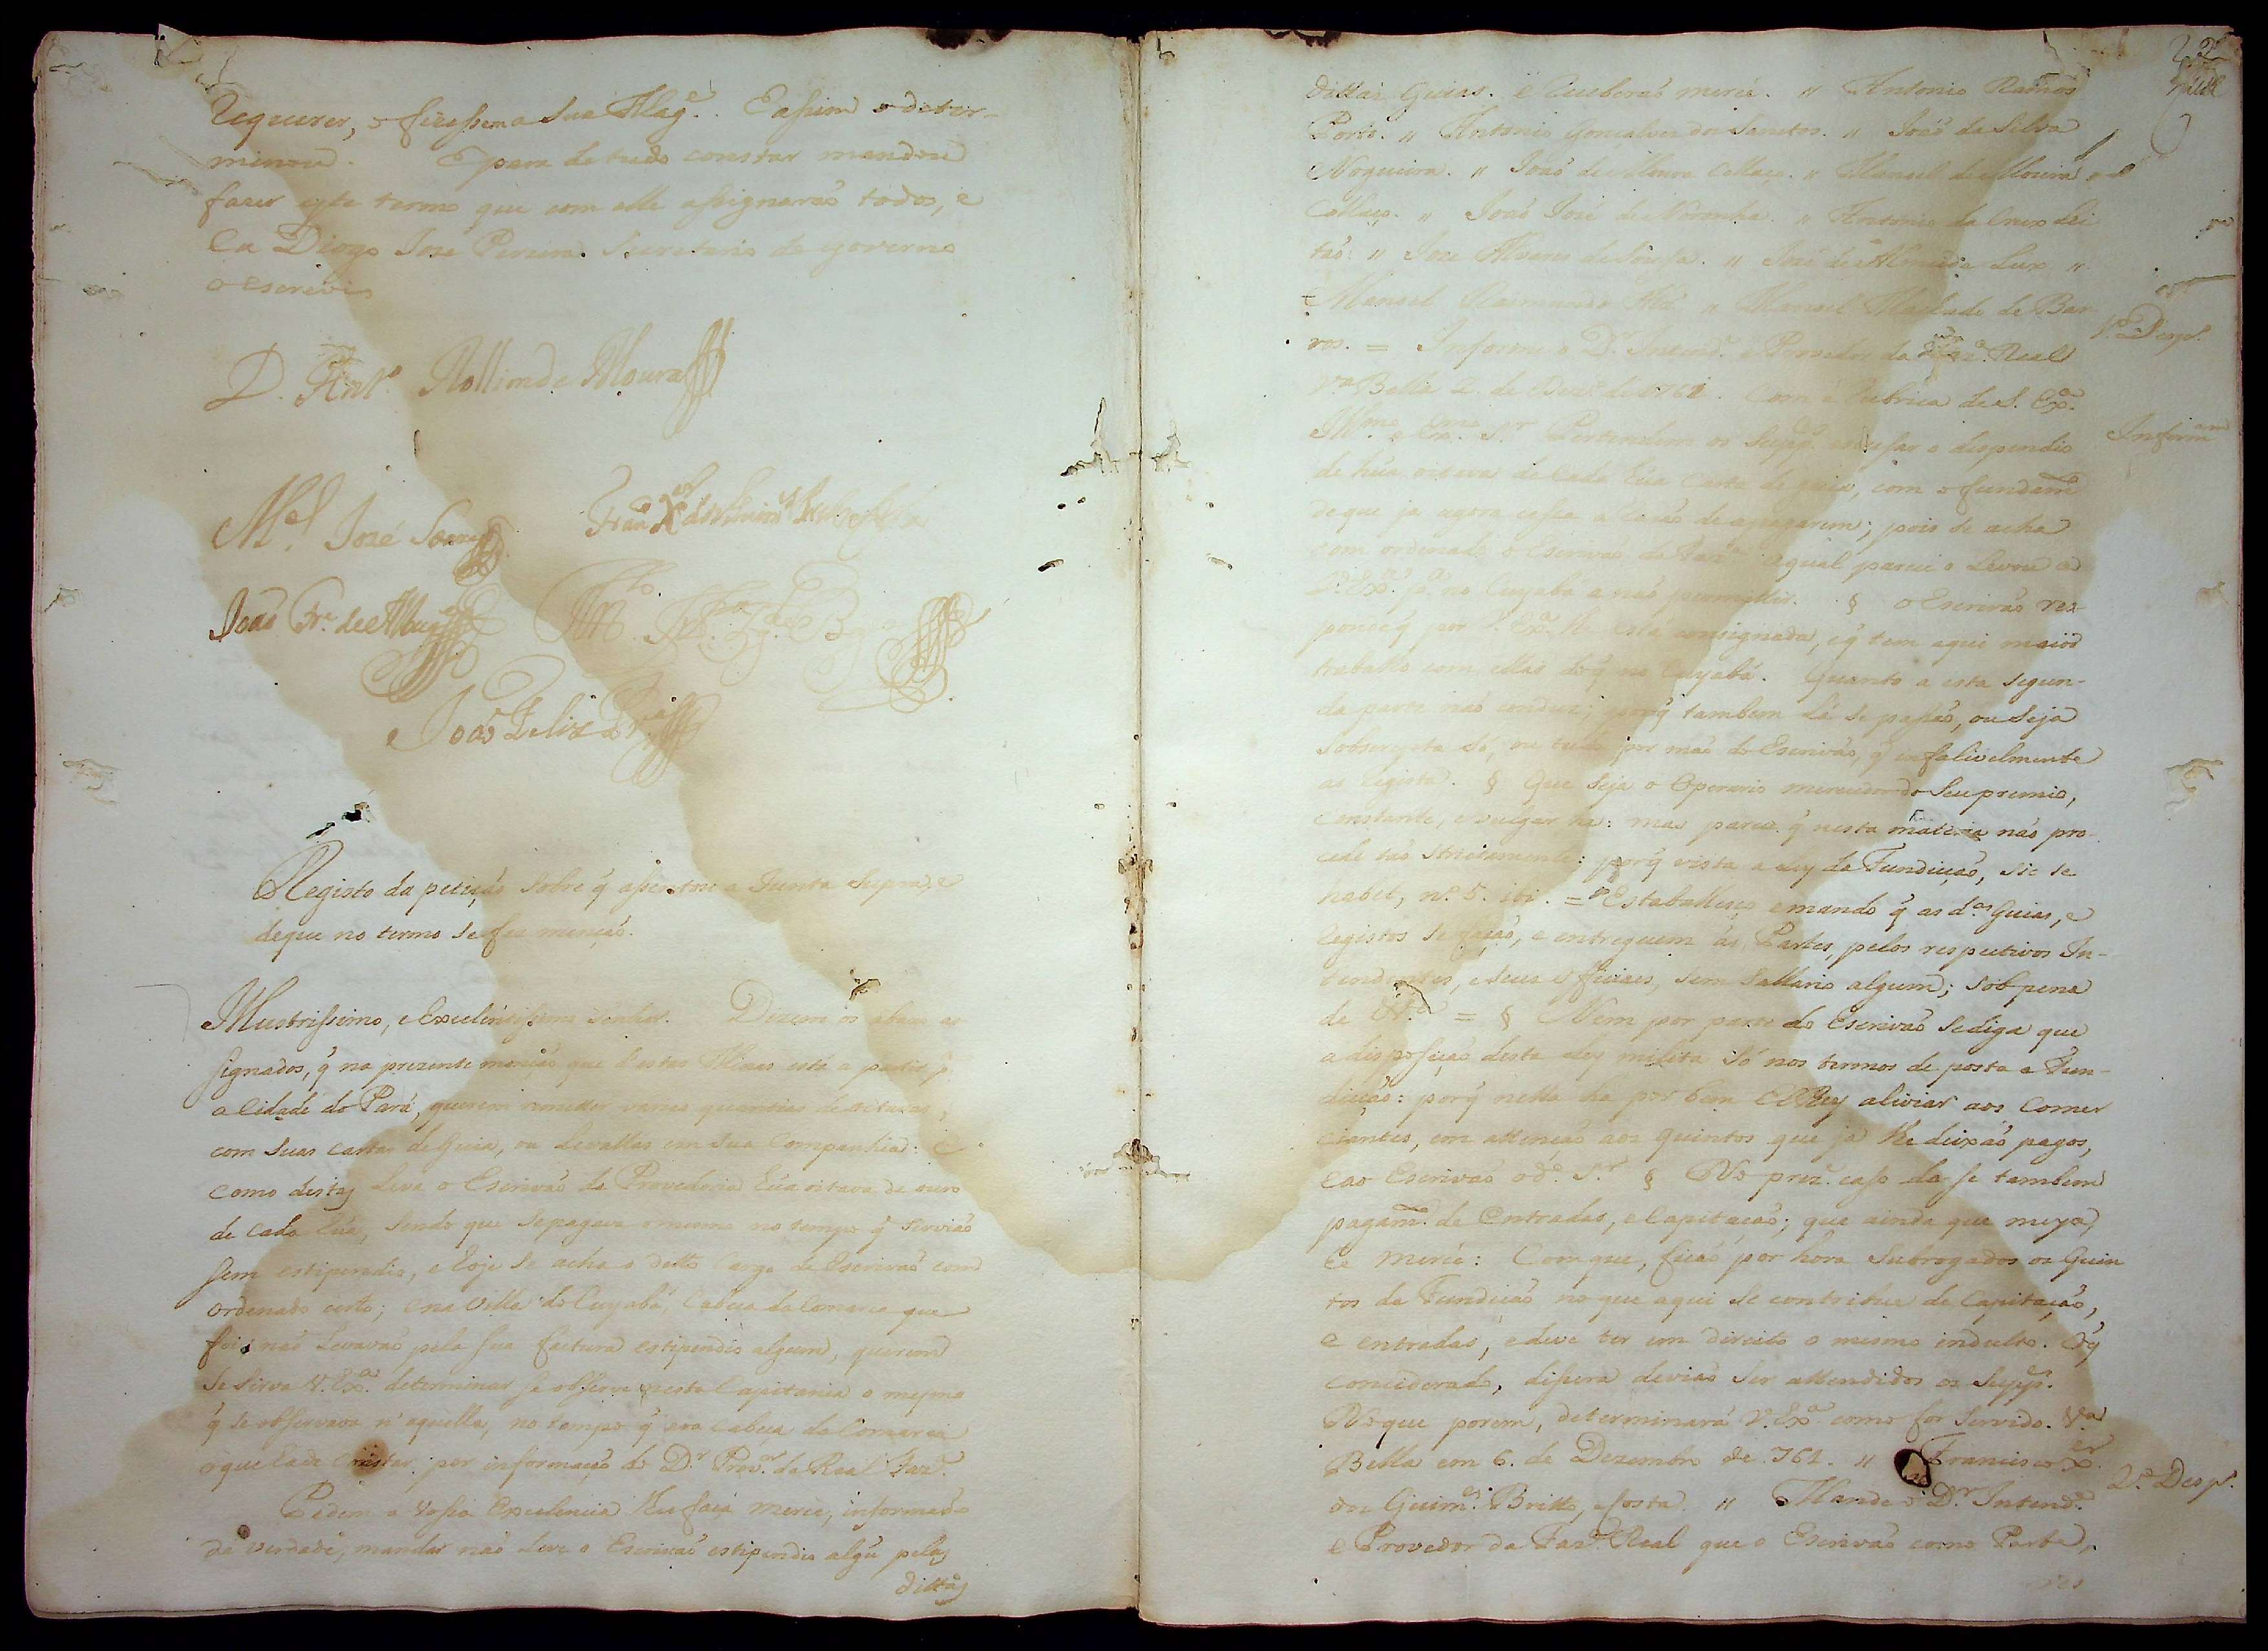 Requerer, o fizessem a Sua Mag.e. E assim o deter-
minou. E para de tudo constar mandou
fazer este termo que com elle assignaraõ todos, e
Eu Diogo Joze Pereira Secretario do governo
o escrevi
D. Ant.o Rollim de Moura
M.el José Soares
Fran.co X.er dos Guim.es Britto e Costa
Joaõ Fr.a de Albuq.
Joaõ Felix Pr.a
Registo da petiçaõ sobre q̃ assentou a Junta supra, e
de que no termo se fez mençaõ.
Illustrissimo, e Excelentissimo Senhor. Dizem os abaixo as
signados, q̃ na prezente monçaõ que destas Minas está a partir p.a
a Cidade do Pará, querem remetter varias quantias de oitavas,
com suas cartas de Guia, ou levallas em sua Companhia: E
como destas leva o Escrivaõ da Provedoria hũa oitava de ouro
de cada hũa, sendo que se pagava o mesmo no tempo q̃ serviaõ
sem estipendio, e hoje se acha o ditto Cargo de Escrivaõ com
ordenado certo; e na Villa do Cuyabá, Cabeça da Comarca que
foi, naõ levavaõ pela sua factura estipendio algum, querem
se sirva V. Ex.a determinar se observe nesta Capitania o mesmo
q̃ se observava n'aquella, no tempo q̃ era cabeça da Comarca
o que hade constar por informaçaõ do D.r Prov.or da Real Faz.a
Pedem a Vossa Excelencia lhes faça merce, informado
da verdade, mandar naõ leve o Escrivaõ estipendio algũ pelas
dittas
22
dittas Guias. E Receberaõ mercê. " Antonio Ramos
Porto. " Antonio Gonçalves dos Santos. " Joaõ da Silva
Nogueira. " Joaõ de Moura Collaço. " Manoel de Moura
Collaço. " Joaõ José de Noronha. " Antonio da Cruz Lei
taõ. " Joze Alvares de Sousa. " José de Almeida Lux "
Manoel Raimundo " Manoel Machado de Bar
ros. = Informe o D.r Intend.e e Provedor da Faz.a Real
1.o Desp.o
V.a Bella 2. de Dez.o de 1761. Com a Rubrica de S. Ex.a
Ill.mo e Ex.mo S.r Pertendem os Supp.es escusar o dispendio
Inform.am
de hũa oitava de cada hũa Carta de guia, com o fundam.to
de que ja agora cessa a razaõ de a pagarem; pois se acha
com ordenado o Escrivaõ da Faz.a a qual parece o levou a
V. Ex.a p.a no Cuyabá a naõ permittir. § o Escrivaõ res-
ponde q̃ por V. Ex.a lhe está consignada, e q̃ tem aqui maior
trabalho com ellas do q̃ no Cuyabá. Quanto a esta segun-
da parte naõ conduz; porq̃ tambem lá se passaõ, ou seja
sobscripta só, ou tudo por maõ do Escrivaõ, q̃ infalivelmente
as Registra. § Que seja o Operario merecedor do Seu premio,
constante, e vulgar he: mas parece q̃ nesta materia naõ pro-
cede taõ strictamente: porq̃ vista a Ley da Fundiçaõ, sic se
habet, n.o 5. ibi. = Estabelleço, e mando q̃ as d.as Guias, e
Registos se façaõ, e entreguem ás Partes, pelos respectivos In-
tendentes, e seus officiaes, sem Sallario algum; sob pena
de Et.a = § Nem por parte do Escrivaõ se diga que
a disposiçaõ desta Ley milita só nos termos de posta a Fun-
diçaõ: porq̃ nella ha por bem ElRey aliviar aos Comer
ciantes, em attençaõ aos Quintos que ja lhe deixaõ pagos,
e ao Escrivaõ o d.o S.r § No prez.e caso da se tambem
pagam.to de Entradas, e Capitaçaõ; que ainda que meya,
he merce: Com que, ficaõ por hora Subrogados os Quin
tos da Fundiçaõ no que aqui se contribue de Capitaçaõ,
e entradas, e deve ter em direito o mesmo indulto. O q̃
considerado, dissera deviaõ ser attendidos os Supp.es
No que porem, determinará V. Ex.a como for servido. V.a
Bella em 6. de Dezembro de 761. " Francisco X.er
dos Guim.es Britto, e Costa. " Mande o D.r Intend.e
2.o Desp.o
e Provedor da Faz.a Real que o Escrivaõ como Parte,